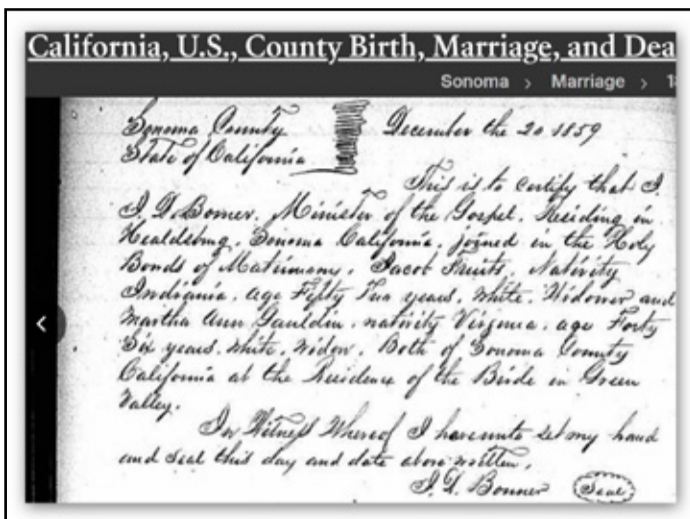 California, U.S., County Birth, Marriage, and Dea
Sonoma > Marriage > 18
Sonoma County December the 20 1859
State of California
This is to certify that I
J. D. Bonner. Minister of the Gospel. Residing in
Healdsburg. Sonoma California. joined in the Holy
Bonds of Matrimony. Jacob Fruits. Nativity
Indiania. age Fifty Two years. White. Widower and
Martha Ann Gauldin. nativity Virginia. age Forty
Six years. White. Widow. Both of Sonoma County
California at the Residence of the Bride in Green
Valley.
In Witness Whereof I hereunto set my hand
and seal this day and date above written.
J. D. Bonner Seal